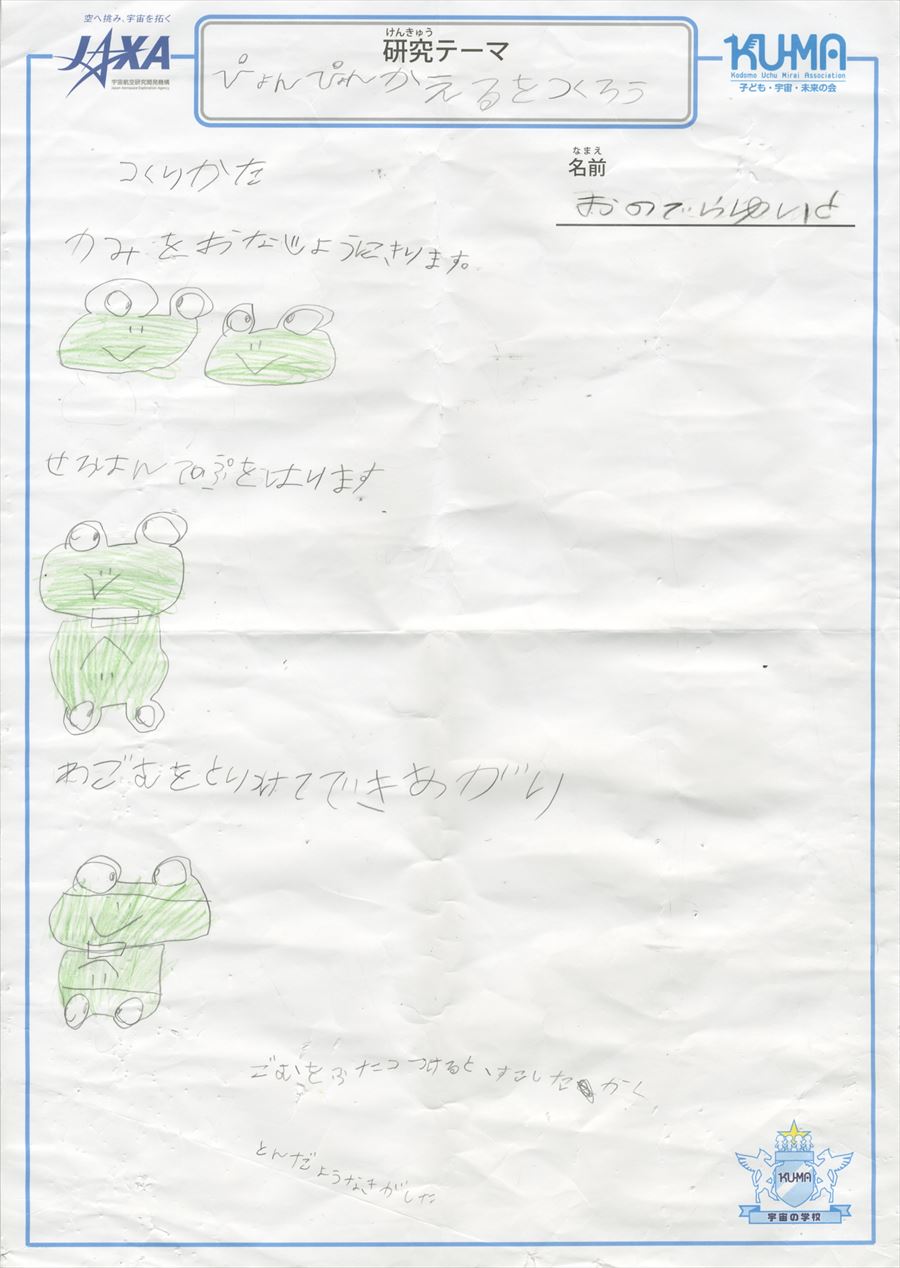 空へ挑み、宇宙を拓く
JAXA
宇宙航空研究開発機構
Japan Aerospace Exploration Agency
けんきゅう
研究テーマ
ぴょんぴょんかえるをつくろう
KU-MA
Kodomo Uchu Mirai Association
子ども・宇宙・未来の会
つくりかた
なまえ
名前
おのでらゆいと
かみをおなじようにきります。
せろはんてのぷをはります
わごむをとりつけてできあがり
ごむをふたつつけると、すこしたかく
とんだようなきがした
KU-MA
宇宙の学校